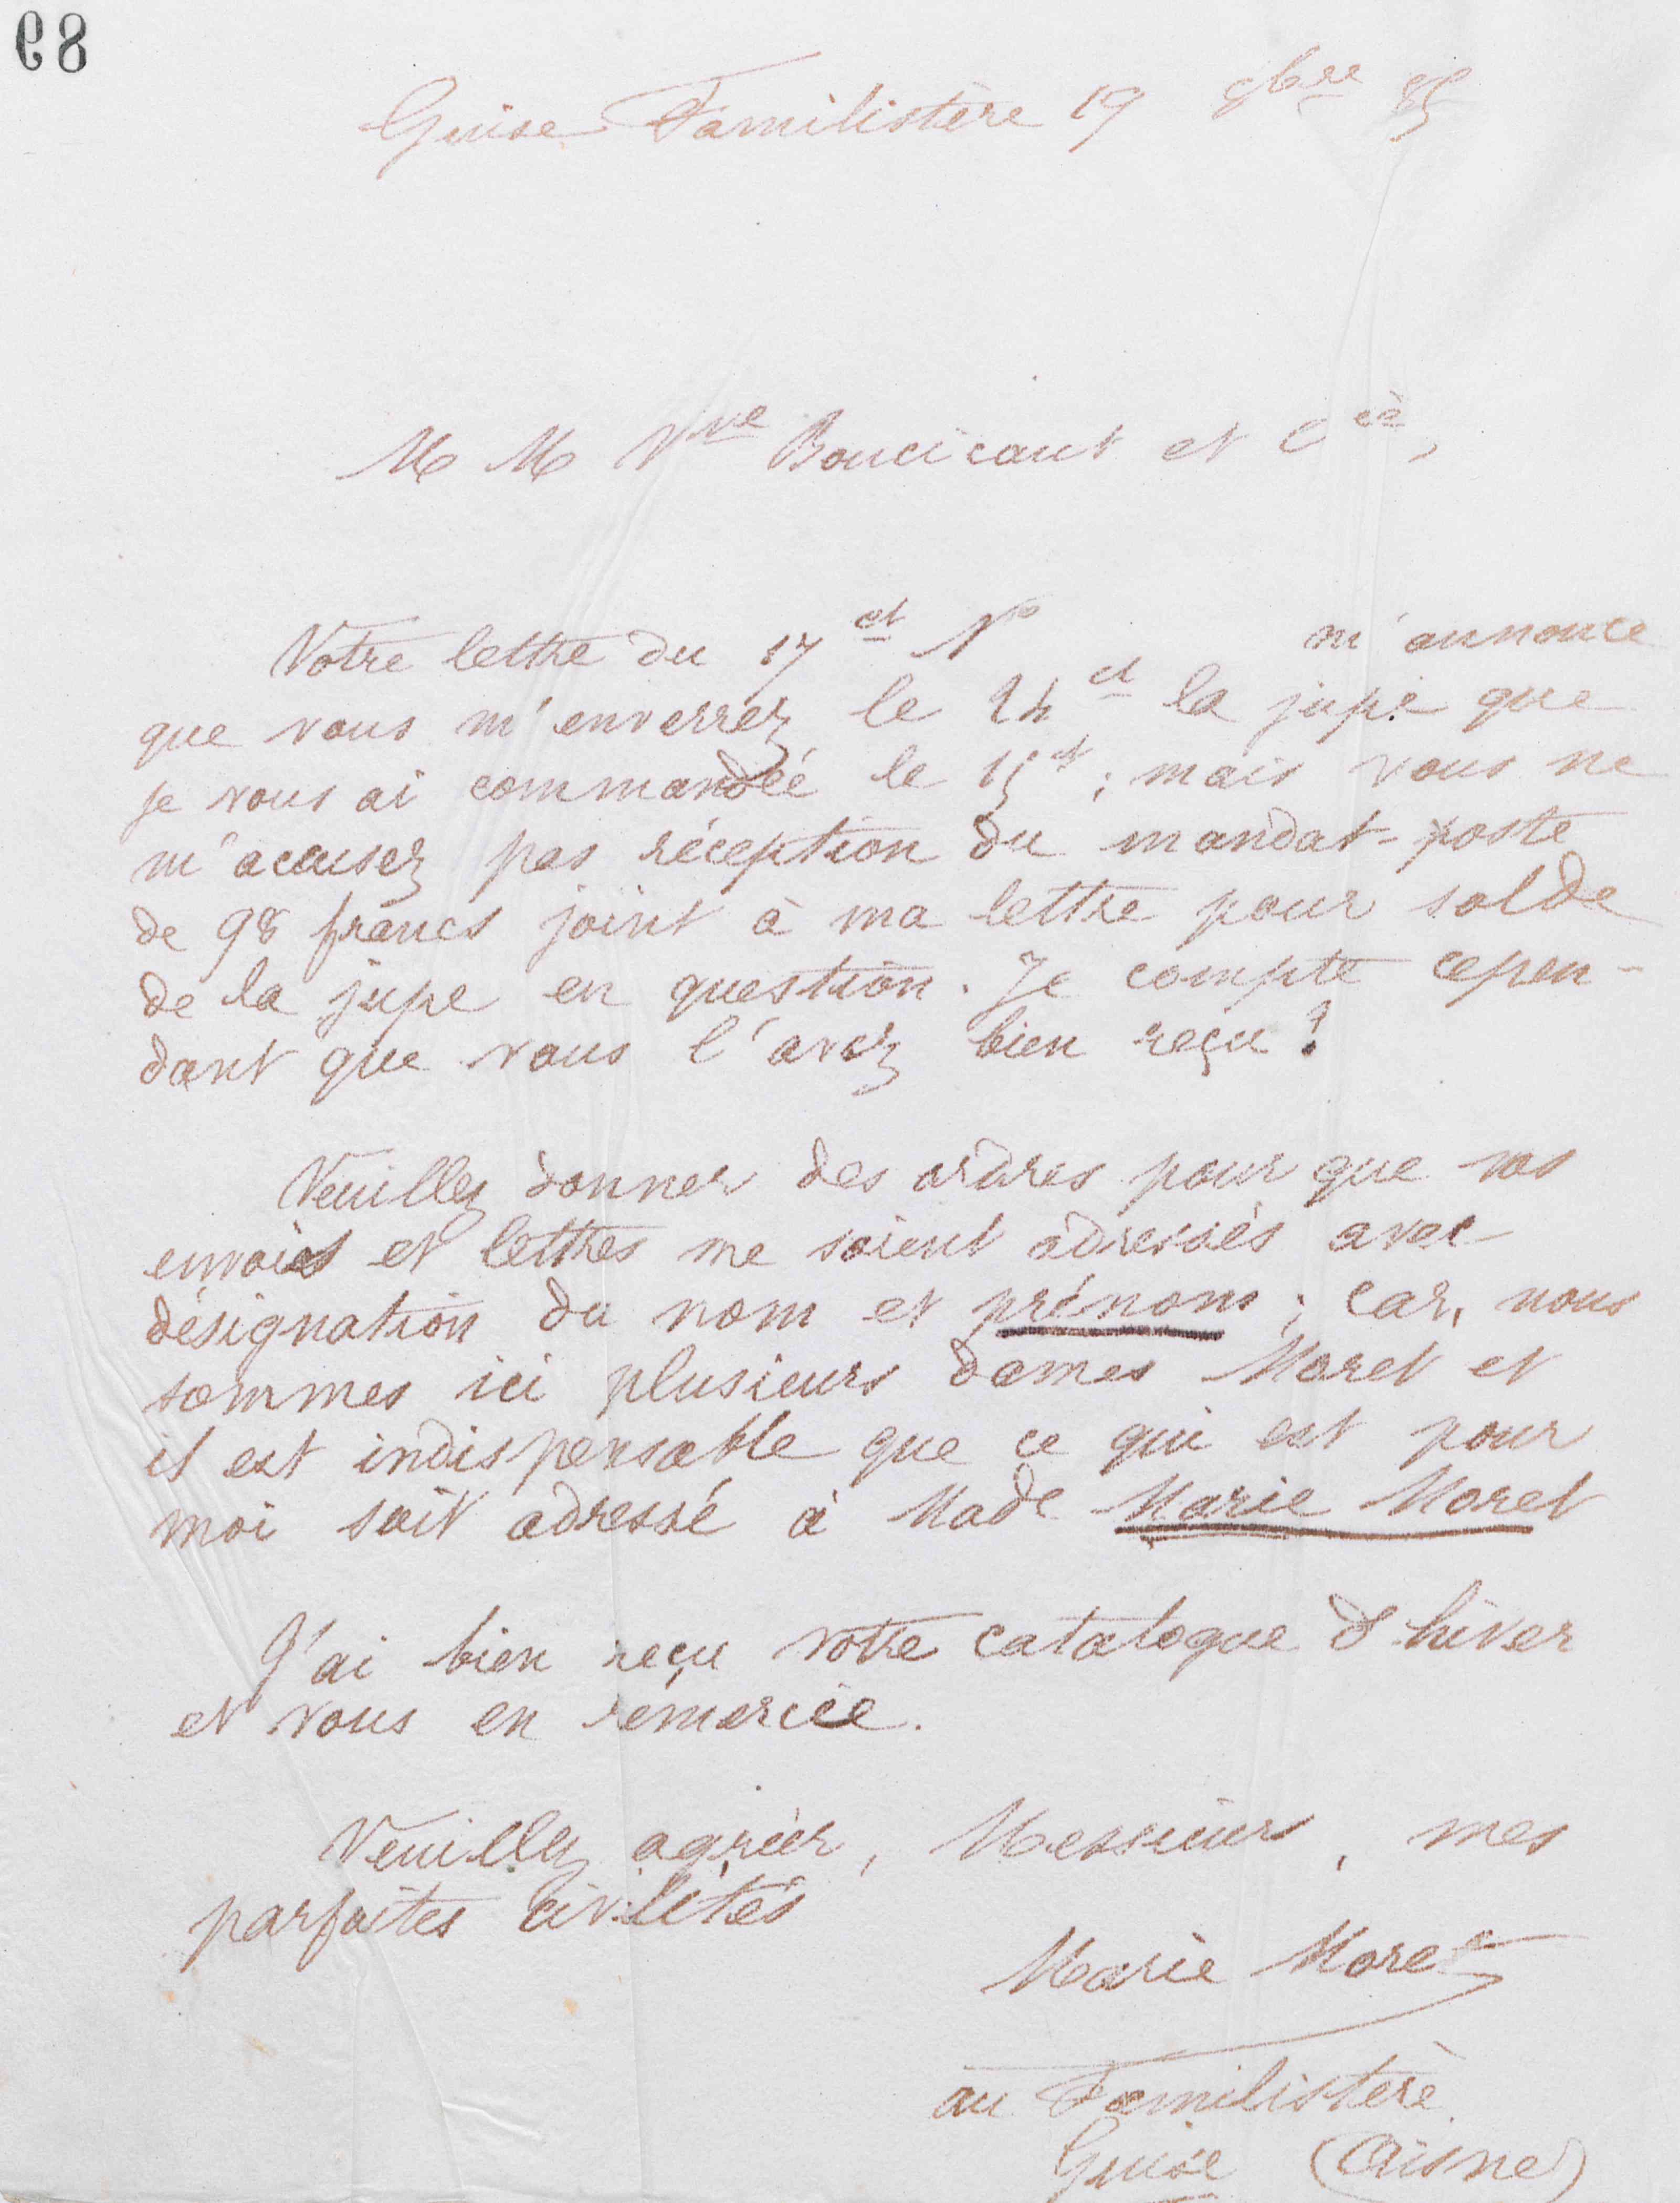 89
Guise Familistère 19 9bre 85
M M Vve Boucicaut et Cie,
Votre lettre du 17 ct N° m'annonce
que vous m'enverrez le 24 ct la jupe que
je vous ai commandée le 15 ct ; mais vous ne
m'accusez pas réception du mandat-poste
de 98 francs joint à ma lettre pour solde
de la jupe en question. Je compte cepen-
dant que vous l'avez bien reçu ?
Veuillez donner des ordres pour que vos
envois et lettres me soient adressés avec
désignation du nom et prénom ; car, nous
sommes ici plusieurs dames Moret et
il est indispensable que ce qui est pour
moi soit adressé à Made Marie Moret
J'ai bien reçu votre catalogue d'hiver
et vous en remercie.
Veuillez agréer, Messieurs, mes
parfaites civilités
Marie Moret
au Familistère
Guise (Aisne)